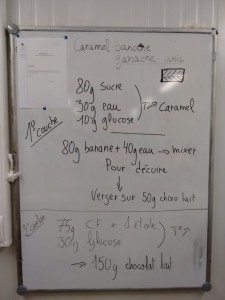 Caramel banane
ganache
80g sucre
30g eau
10g glucose
→ Caramel
1° couche
80g banane + 40g eau → mixer
Pour décuire
↓
Verser sur 50g choco lait
2° couche
75g CF + 1 étoile
30g Glucose
T°↗
→ 150g chocolat lait